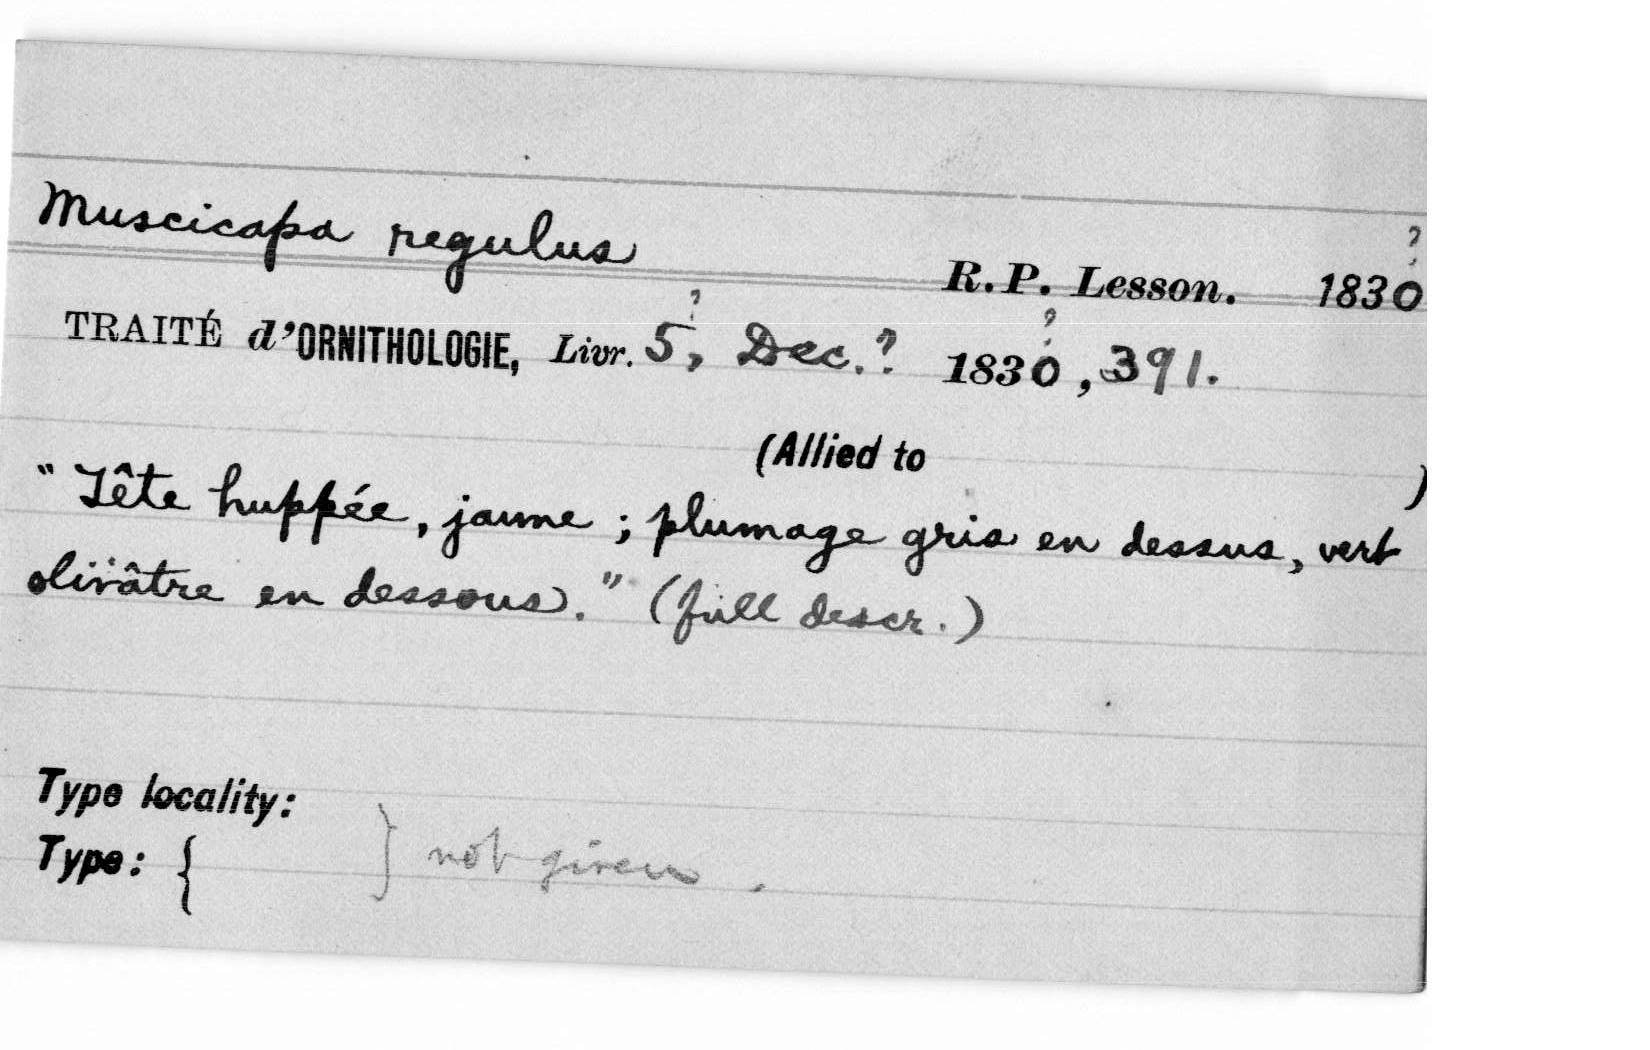 Muscicapa regulus R.P. Lesson. 1830?
TRAITÉ d'ORNITHOLOGIE, Livr. 5?, Dec.? 1830?, 391.
(Allied to )
"Tête huppée, jaune; plumage gris en dessus, vert
olivâtre en dessous." (full descr.)
Type locality:
Type: { } not given.